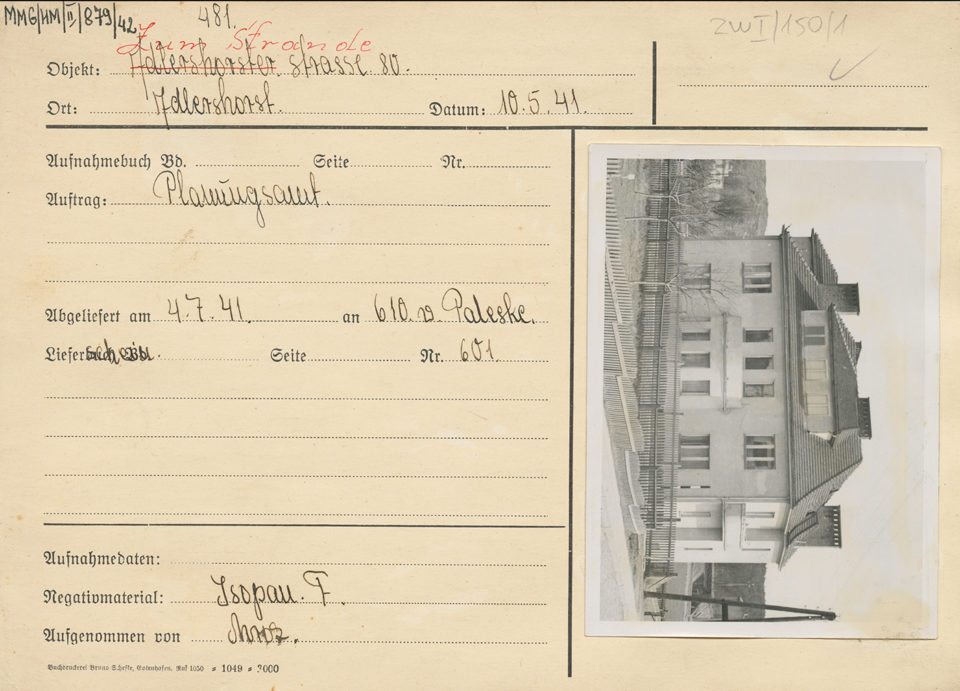 MMG/HM/II/879/42
481.
ZWI/150/1
Zum Strande
Objekt: Adlershorster strasse 80.
Ort: Adlershorst. Datum: 10.5.41.
Aufnahmebuch Bd. Seite Nr.
Auftrag: Planungsamt.
Abgeliefert am 4.7.41. an 610. v. Paleske.
Lieferschein. Seite Nr. 601.
Aufnahmedaten:
Negativmaterial: Isopan. F.
Aufgenommen von
Buchdruckerei Bruno Scheffe, Gotenhafen, Ruf 1050 * 1049 * 3000